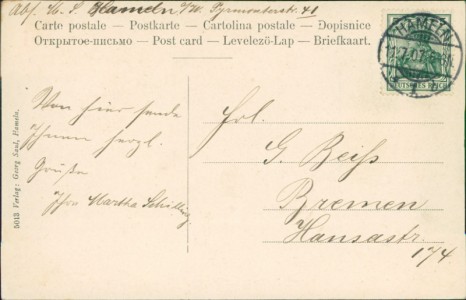 Abs. M. S. Hameln a/W. Pyrmonterstr. 41
Carte postale – Postkarte – Cartolina postale – Dopisnice
Открытое-письмо – Post card – Levelező-Lap – Briefkaart.
HAMELN
DEUTSCHES REICH
Von hier sende
Ihnen herzl.
Grüße
Ihre Martha Schilling
Frl.
G. Beiss
Bremen
Hansastr.
174
5013 Verlag: Georg Saul, Hameln.